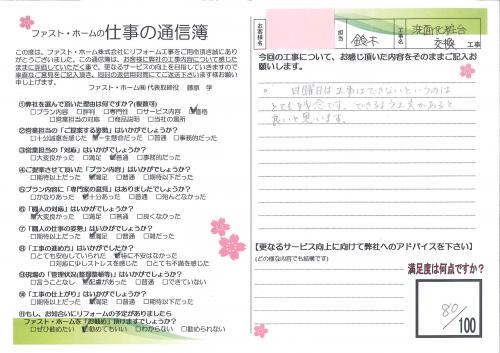 ファスト・ホームの仕事の通信簿
この度は、ファスト・ホーム株式会社にリフォーム工事をご用命頂き誠にあり
がとうございました。この通信簿は、お客様に弊社の工事内容について感じた
ままに評価していただく事で、更なるサービスの向上を目指していきますので
率直なご意見をご記入頂き、同封の返信用封筒にてご返送下さいます様お願い
申し上げます。
ファスト・ホーム㈱ 代表取締役 藤原 学
①弊社を選んで頂いた理由は何ですか?(複数可)
□プラン内容 □評判 □専門性 □サービス内容 ☑価格
□営業担当者 □商品説明 □当社の場所
②営業担当の「ご提案する姿勢」はいかがでしょうか?
□十分誠意を感じた ☑一生懸命だった □普通 □事務的だった
③営業担当の「対応」はいかがでしょうか?
□大変良かった ☑満足 □普通 □事務的だった
④ご提案させて頂いた「プラン内容」はいかがでしょうか?
□期待以上だった ☑満足 □普通 □期待以下だった
⑤プラン内容に「専門家の意見」はありましたでしょうか?
□かなりあった ☑十分あった □普通 □殆んどなかった
⑥「職人の対応」はいかがでしょうか?
☑大変良かった □満足 □普通 □良くなかった
⑦「職人の仕事の姿勢」はいかがでしょうか?
□期待以上だった ☑満足 □普通 □期待以下だった
⑧「工事の進め方」はいかがでしたか?
□とても安心していられた ☑特に不安はなかった
□対応に少しストレスを感じた □とても不満を感じた
⑨現場の「管理状況(整理整頓等)」はいかがでしょうか?
□言うことなし ☑配慮があった □普通 □できていない
⑩「工事の仕上がり」はいかがでしょうか?
□期待以上だった ☑満足 □普通 □期待以下だった
⑪もし、お知合いにリフォームの予定がありましたら
ファスト・ホームを「お勧め」頂けますでしょうか?
□ぜひ勧めたい ☑勧めてもいい □わからない □勧められない
お客様名
担当 鈴木
工事名 洗面化粧台交換 工事
今回の工事について、お感じ頂いた内容をそのままご記入お
願いします。
日曜日は工事はできないというのは
とても残念です。できるよう工夫があると
良いと思います。
【更なるサービス向上に向けて弊社へのアドバイスを下さい】
(どの様な内容でも結構です)
満足度は何点ですか?
80/100